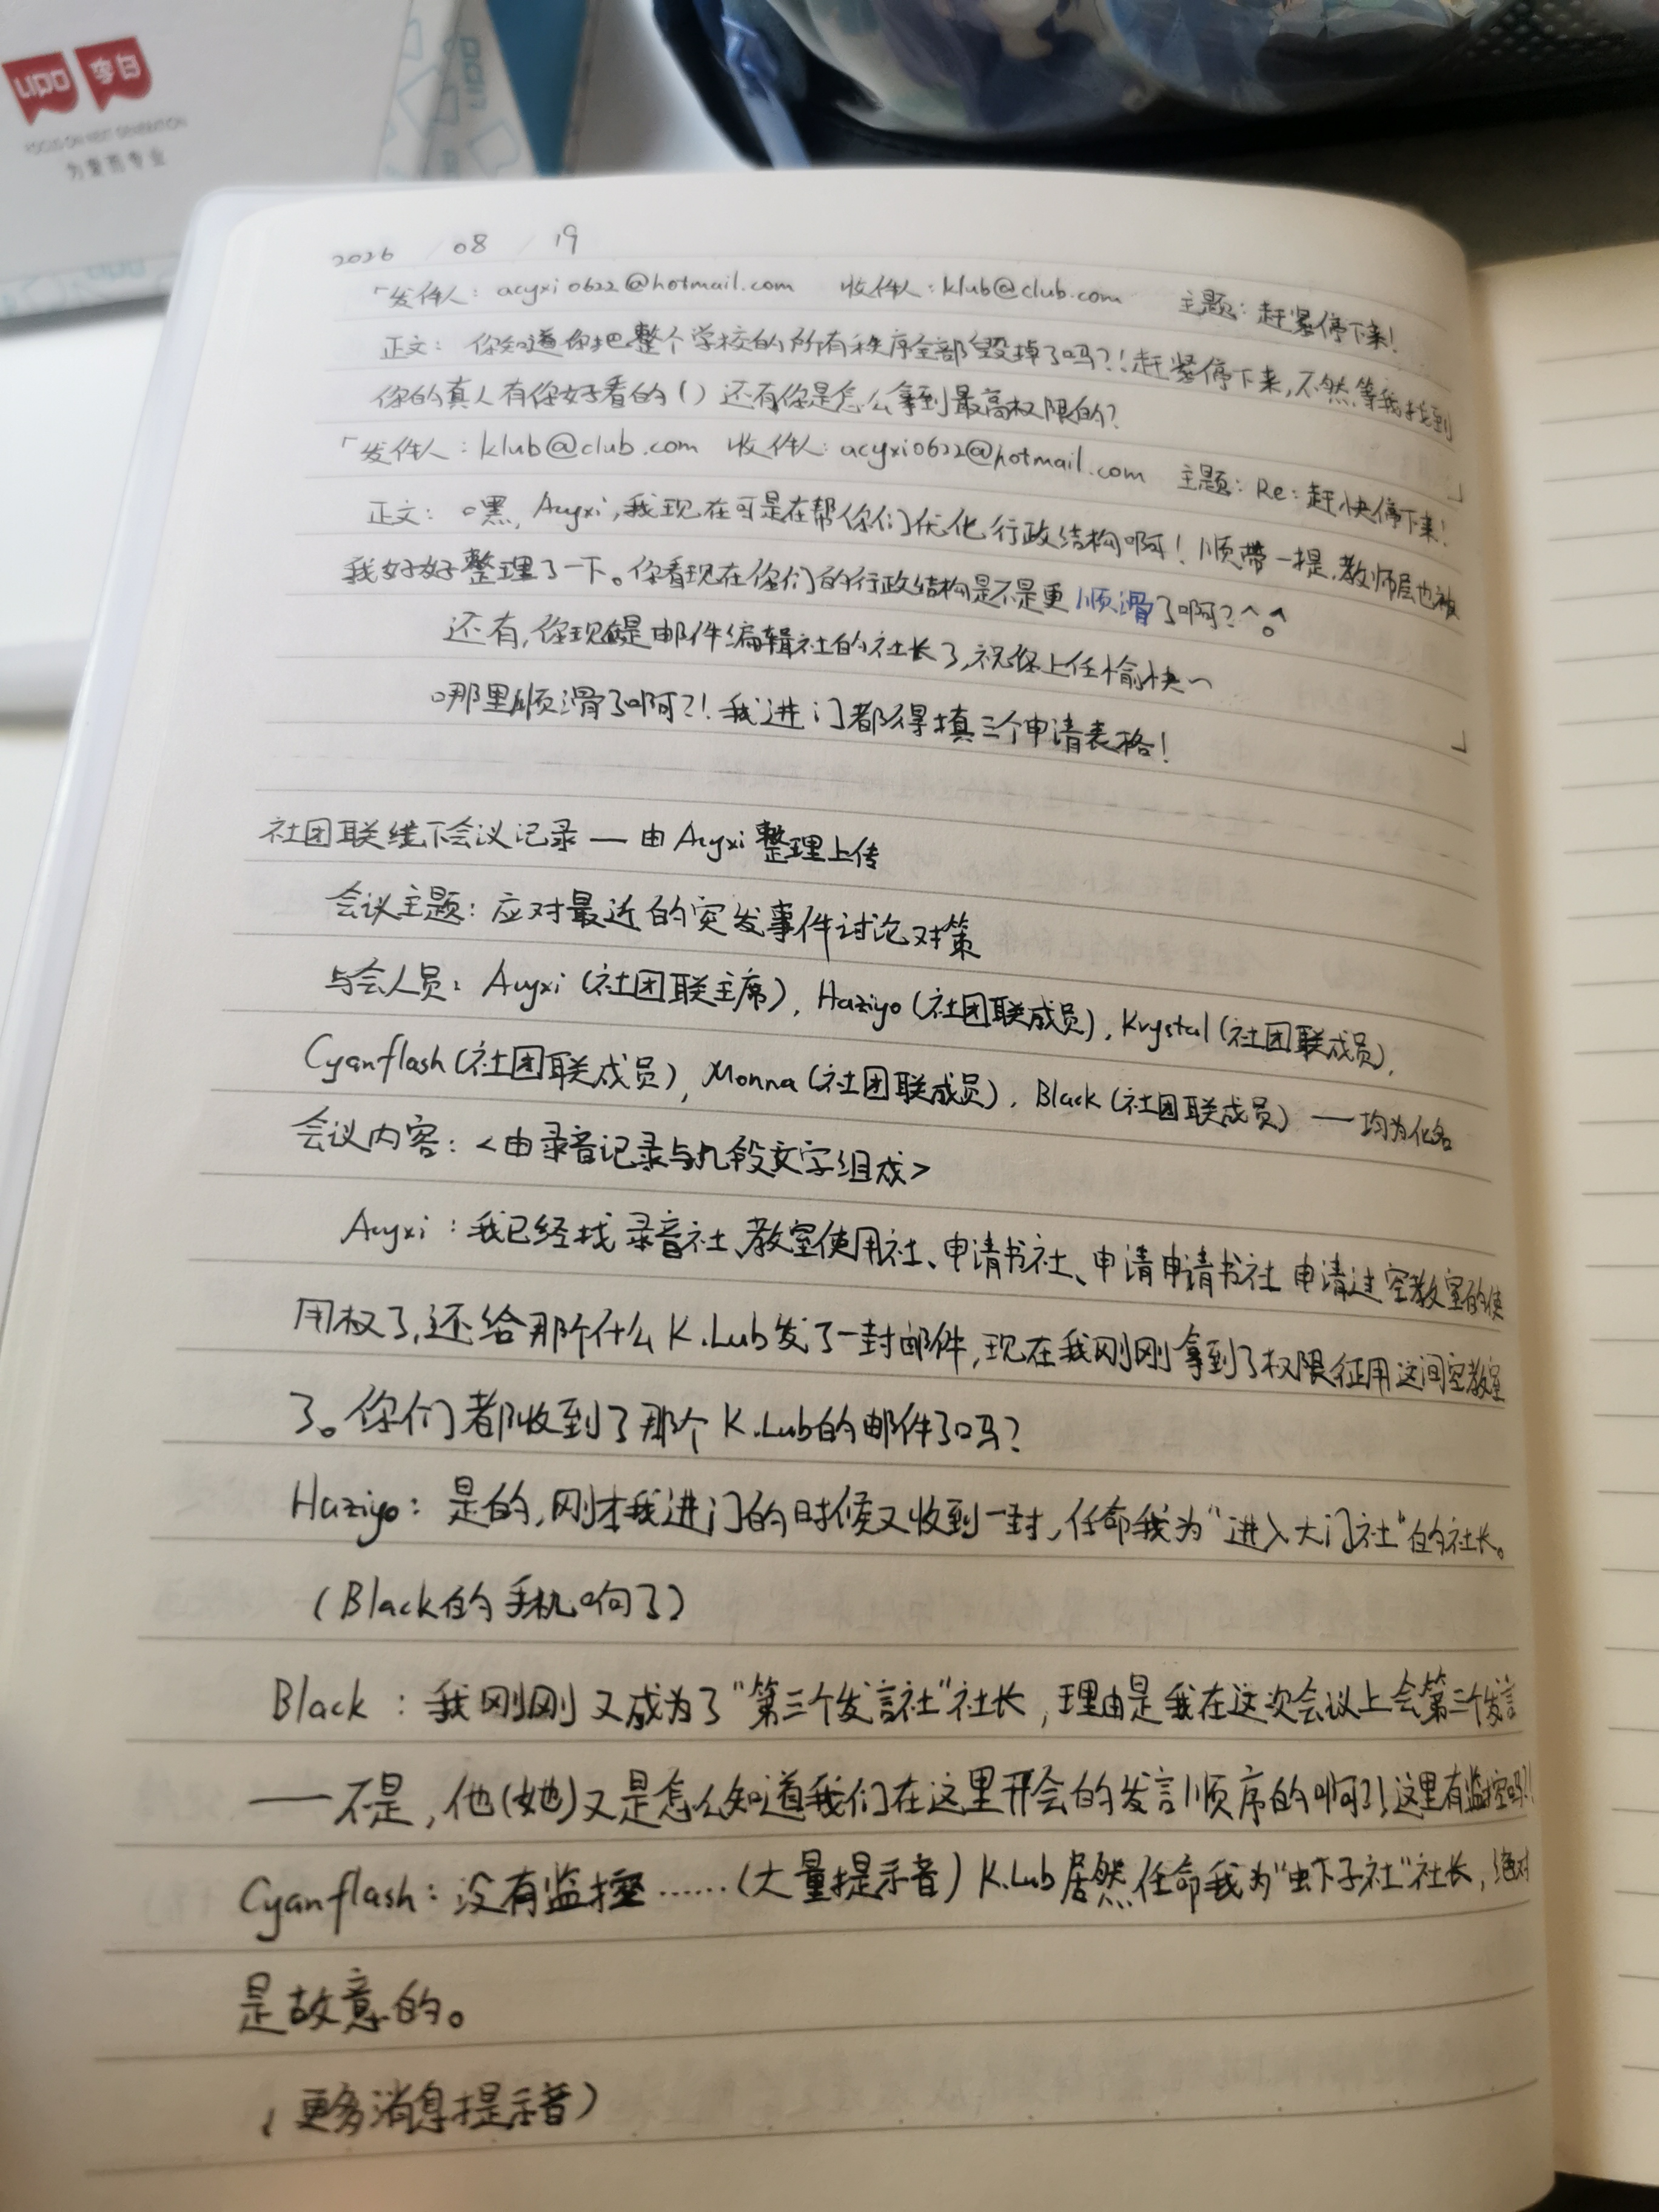 LIDO 李白
为童而专业
2026 / 08 / 19
「发件人：acyxi0622@hotmail.com 收件人：klub@club.com 主题：赶紧停下来！
正文：你知道你把整个学校的所有秩序全部毁掉了吗？！赶紧停下来，不然等我找到
你的真人有你好看的（）还有你是怎么拿到最高权限的？
」
「发件人：klub@club.com 收件人：acyxi0622@hotmail.com 主题：Re：赶快停下来！
正文：嘿，Acyxi，我现在可是在帮你们优化行政结构啊！顺带一提，教师层也被
我好好整理了一下。你看现在你们的行政结构是不是更顺滑了啊？^o^
还有，你现在是邮件编辑社的社长了，祝你上任愉快～
」
哪里顺滑了啊？！我进门都得填三个申请表格！
社团联线下会议记录 — 由Acyxi整理上传
会议主题：应对最近的突发事件讨论对策
与会人员：Acyxi（社团联主席），Haziyo（社团联成员），Krystal（社团联成员），
Cyanflash（社团联成员），Monna（社团联成员），Black（社团联成员）—均为化名
会议内容：<由录音记录与几段文字组成>
Acyxi：我已经找录音社、教室使用社、申请书社、申请申请书社申请过空教室的使
用权了，还给那个什么K.Lub发了一封邮件，现在我刚刚拿到了权限征用这间空教室
了。你们都收到了那个K.Lub的邮件了吗？
Haziyo：是的，刚才我进门的时候又收到一封，任命我为“进入大门社”的社长。
（Black的手机响了）
Black：我刚刚又成为了“第三个发言社”社长，理由是我在这次会议上会第三个发言
——不是，他（她）又是怎么知道我们在这里开会的发言顺序的啊？！这里有监控吗？！
Cyanflash：没有监控……（大量提示音）K.Lub居然任命我为“虫下子社”社长，绝对
是故意的。
（更多消息提示音）